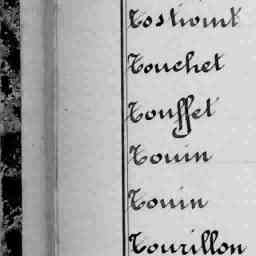 Tostivint
Touchet
Touffet
Touin
Touin
Tourillon